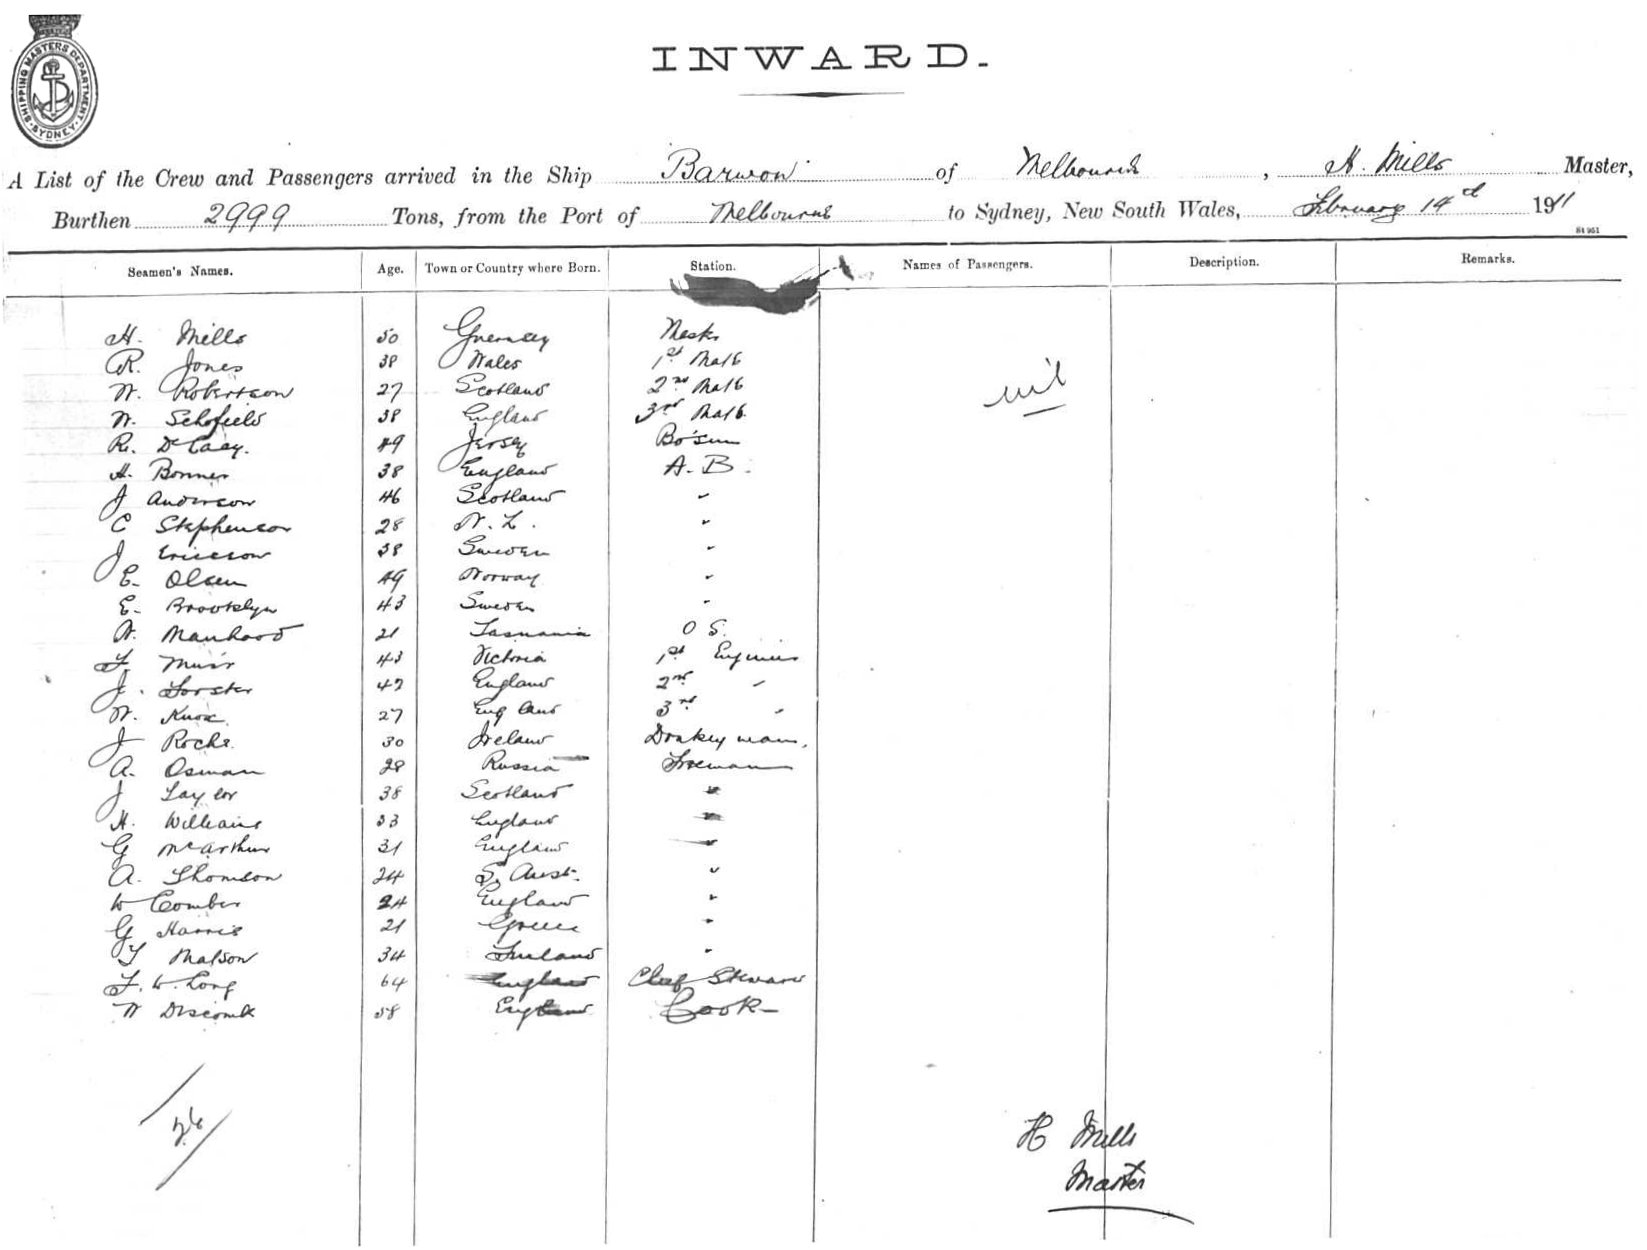 SHIPPING MASTERS DEPARTMENT
SYDNEY
INWARD.
A List of the Crew and Passengers arrived in the Ship Barwon of Melbourne, H. Mills Master,
Burthen 2999 Tons, from the Port of Melbourne to Sydney, New South Wales, February 14th 1911
Seamen's Names. Age. Town or Country where Born. Station. Names of Passengers. Description. Remarks.
H. Mills 50 Guernsey
R. Jones 38 Wales 1st Mate
nil
W. Robertson 27 Scotland 2nd Mate
W. Schofield 38 England 3rd Mate
R. 49 Jersey Bo'sun
H. Bonner 38 England A. B.
J Anderson 46 Scotland "
C Stephenson 28 N. Z. "
J Ericsson 38 Sweden "
E. Olsen 49 Norway "
E. Brooklyn 43 Sweden "
W. Manhood 21 Tasmania O S.
F. Muir 43 Victoria 1st Engineer
J. Forster 42 England 2nd "
W. Knox 27 England 3rd "
J Roche 30 Ireland Donkeyman,
A. Osman 28 Russia Fireman
J Taylor 38 Scotland "
H. Williams 33 England "
G McArthur 31 England "
A. Thomson 24 S. Aust. "
W Comber 24 England "
G Harris 21 Greece "
34 "
F. W. Long 64 England Chief Steward
W 58 England Cook
26
H Mills
Master